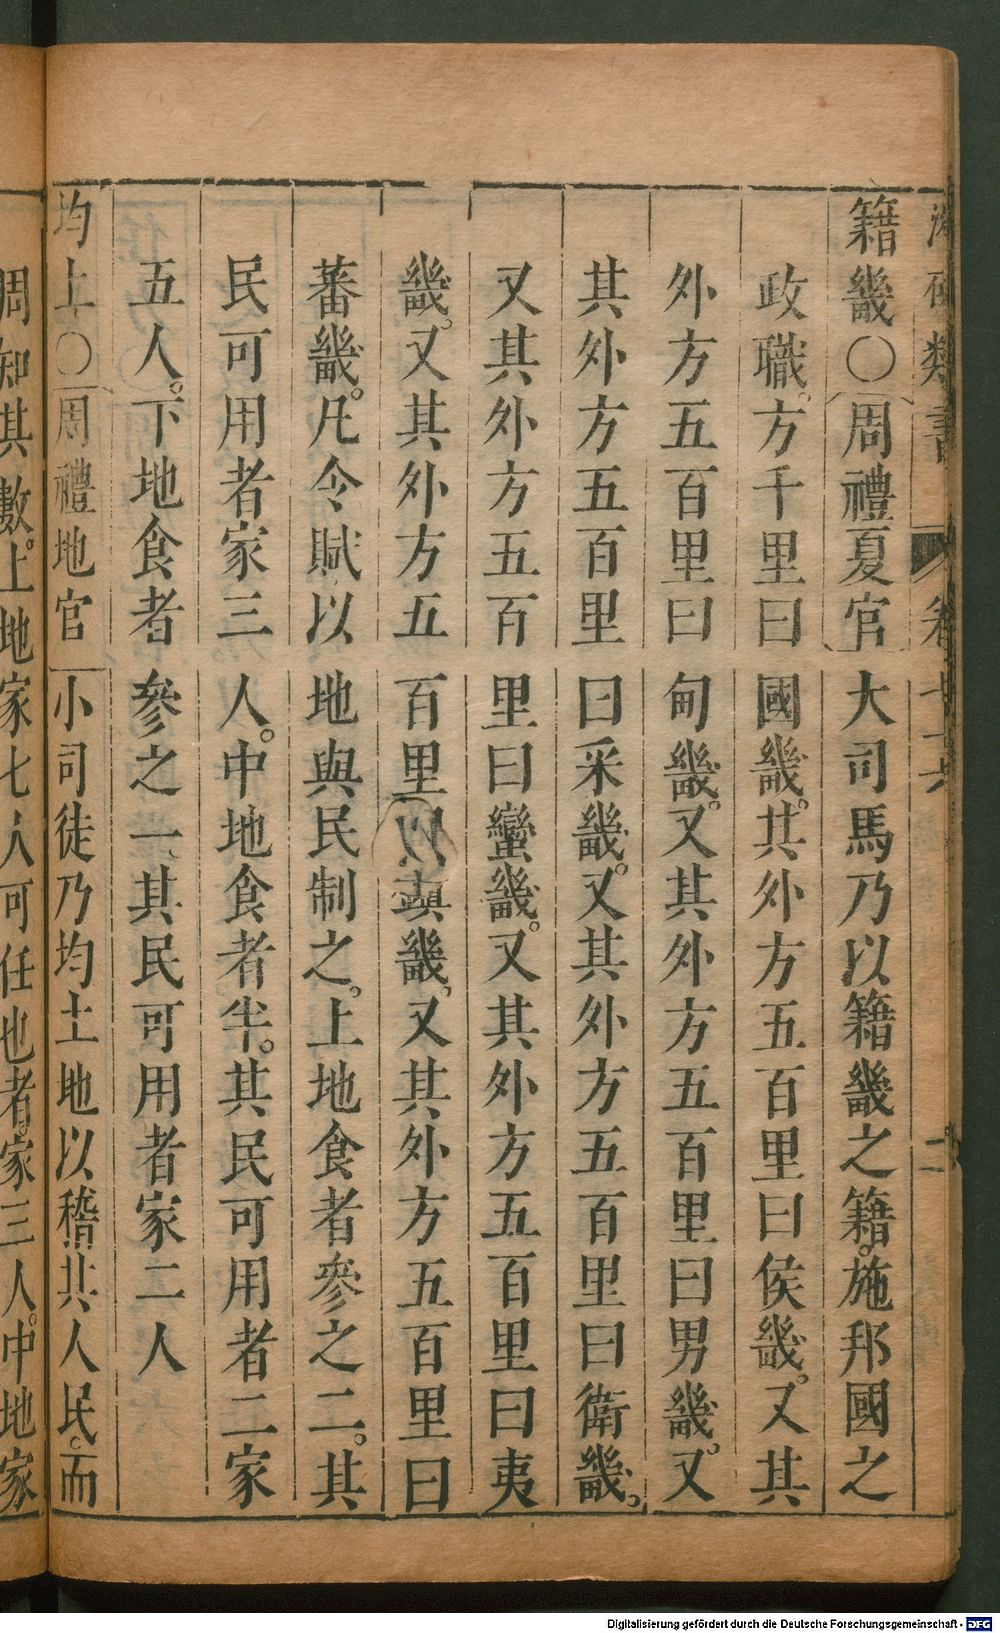 類書 卷
籍畿○周禮夏官大司馬乃以籍畿之籍。施邦國之
政職。方千里曰國畿。其外方五百里曰侯畿。又其
外方五百里曰甸畿。又其外方五百里曰男畿。又
其外方五百里曰采畿。又其外方五百里曰衛畿。
又其外方五百里曰蠻畿。又其外方五百里曰夷
畿。又其外方五百里曰鎮畿。又其外方五百里曰
蕃畿。凡令賦以地與民制之。上地食者參之二。其
民可用者家三人。中地食者半。其民可用者二家
五人。下地食者參之一其民可用者家二人
均土○周禮地官小司徒乃均土地以稽其人民。而
周知其數。上地家七人可任也者。家三人。中地家
Digitalisierung gefördert durch die Deutsche Forschungsgemeinschaft - DFG